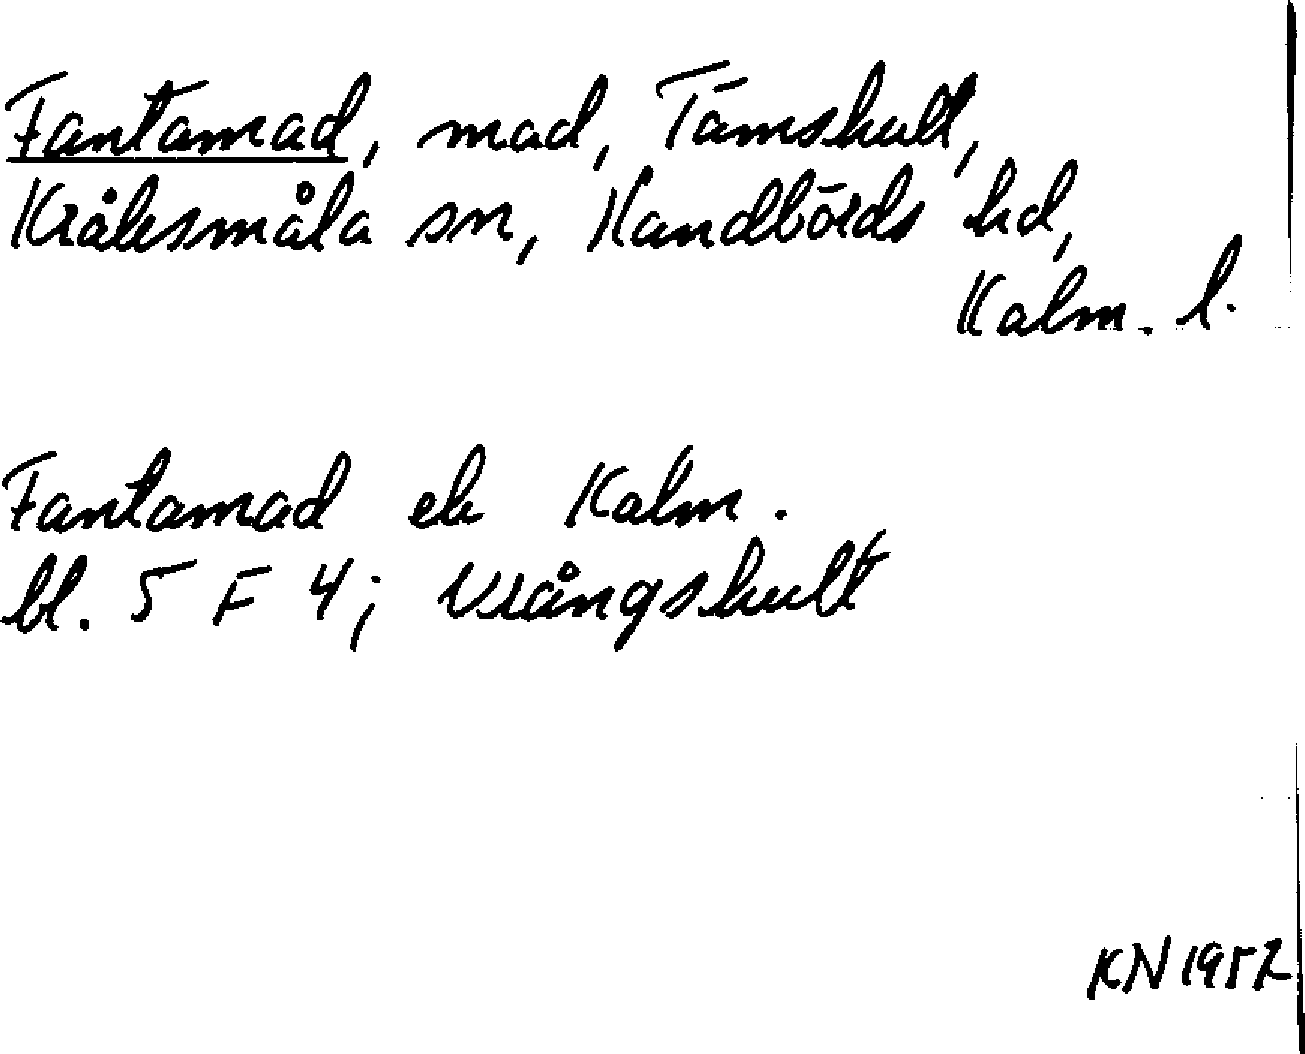 Fantamad, mad, Tämshult,
Kråksmåla sn, Handbörds hd,
Kalm. l.
Fantamad ek Kalm.
bl. 5 F 4; Vrångshult
KN 1952